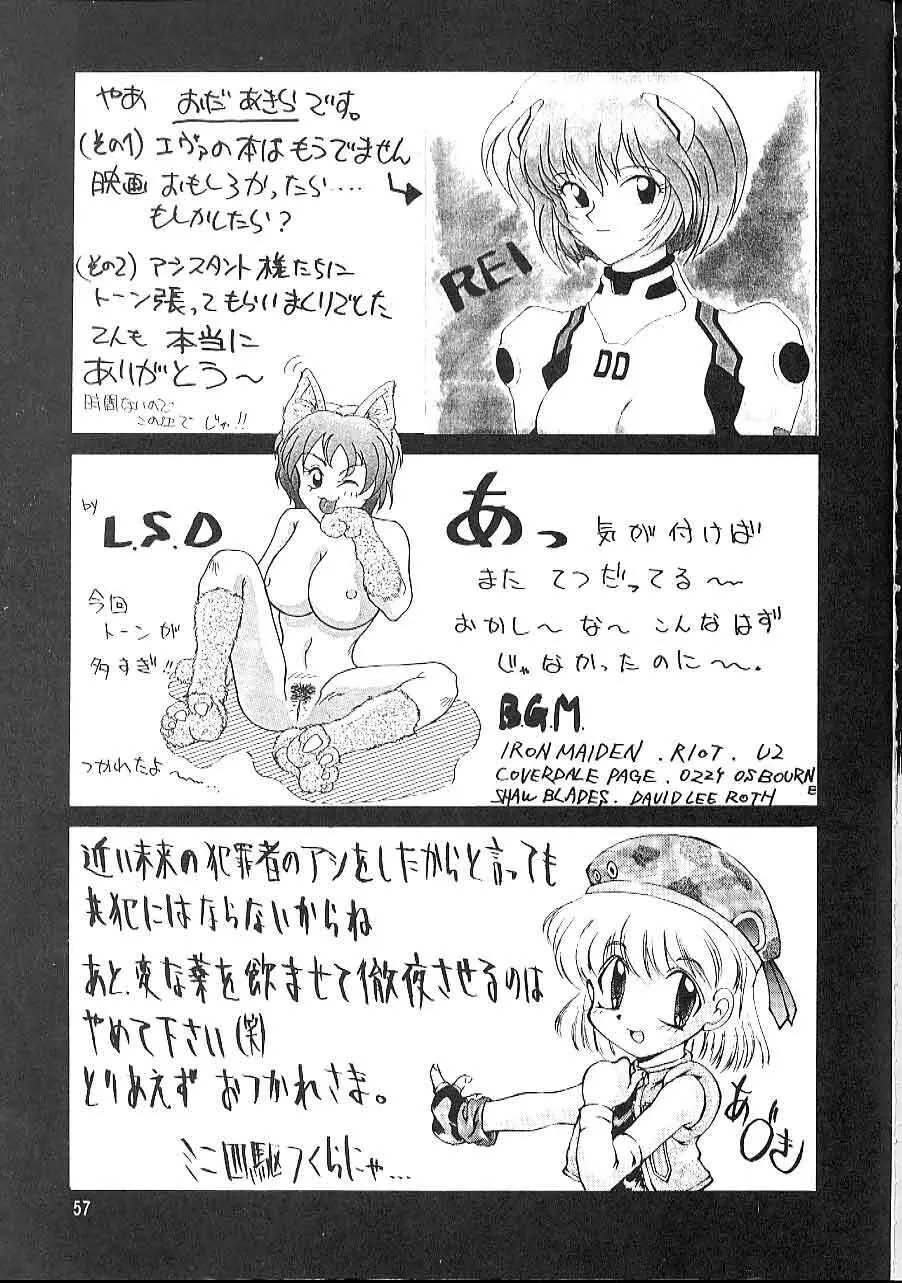 やあ おだ あきら です。
(その1) エヴァの本は もうでません
映画 おもしろかったら‥‥
もしかしたら?
(その2) アシスタント様たちに
トーン張ってもらいまくりでした
てんも 本当に
ありがとう〜
時間ないので
この辺で じゃ!!
REI
00
by
L.S.D
今回
トーンが
多すぎ!!
つかれたよ〜
あっ 気が付けば
また てつだってる〜
おかし〜な〜 こんなはず
じゃなかったのに〜。
B.G.M.
IRON MAIDEN . RIOT . U2
COVERDALE PAGE . OZZY OSBOURNE
SHAW BLADES . DAVID LEE ROTH
近い未来の犯罪者のアシをしたからと言っても
共犯にはならないからね
あと、変な薬を飲ませて徹夜させるのは
やめて下さい(笑)
とりあえず おつかれさま。
ミニ四駆つくらにゃ…
あづき
57